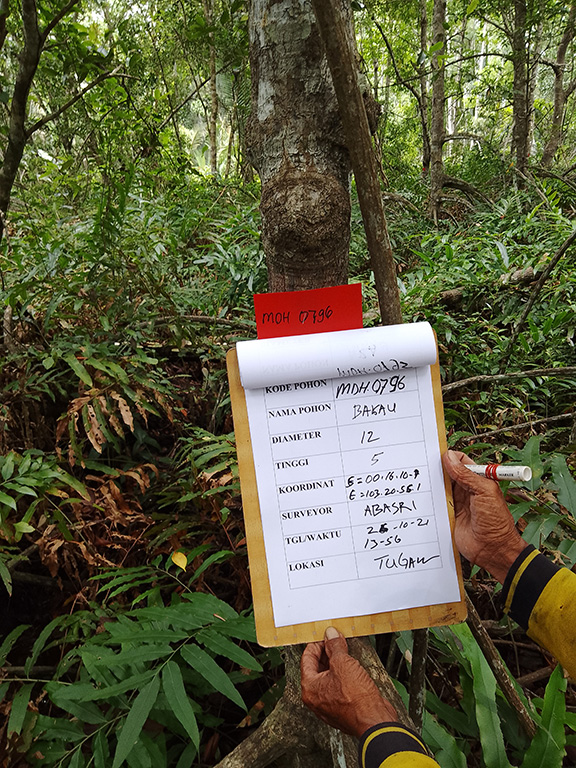 MDH 0796
KODE POHON MDH0796
NAMA POHON BAKAU
DIAMETER 12
TINGGI 5
KOORDINAT S=00.16.10.9
E=103.20.551
SURVEYOR ABASRI
TGL/WAKTU 25-10-21
13-56
LOKASI